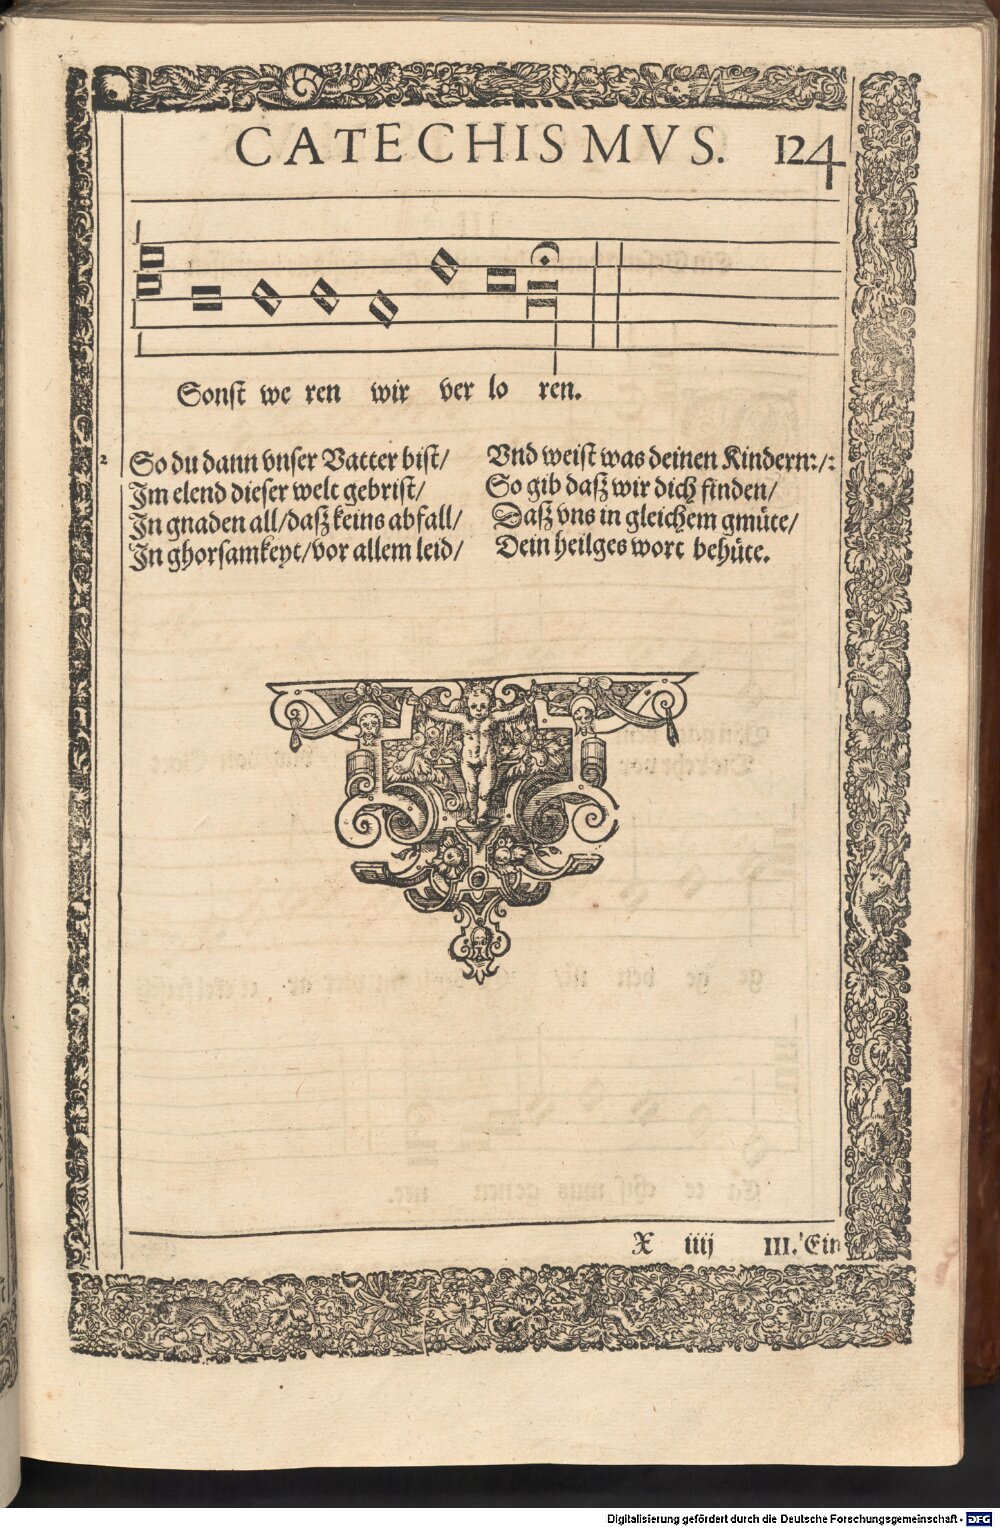 CATECHISMVS. 124
Sonſt we ren wir ver lo ren.
2 So du dann vnſer Vatter biſt/
Im elend dieſer welt gebriſt/
In gnaden all/daſz keins abfall/
In ghorſamkeyt/vor allem leid/
Vnd weiſt was deinen Kindern:/:
So gib daſz wir dich finden/
Daſz vns in gleichem gmüte/
Dein heilges wort behüte.
X iiij III. Ein
Digitalisierung gefördert durch die Deutsche Forschungsgemeinschaft - DFG